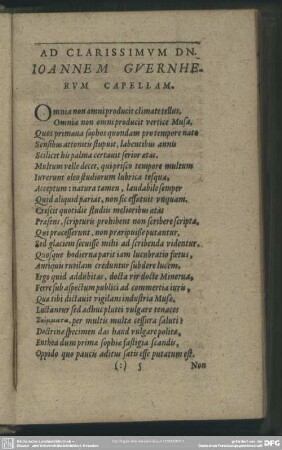 AD CLARISSIMVM DN.
IOANNEM GVERNHE-
RVM CAPELLAM.
Omnia non omni producit climate tellus,
Omnia non omni producit vertice Musa,
Quos primæua sophos quondam pro tempore nato
Sensibus attonitis stupuit, labentibus annis
Scilicet his palma certauit serior ætas.
Multum velle decet, qui prisco tempore multum
Iuverunt oleo studiorum lubrica tesqua,
Acceptum: natura tamen, laudabile semper
Quid aliquid pariat, non sic effœtuit vnquam.
Crescit quotidie studiis melioribus ætas
Præsens, scripturis prohibent non scribere scripta,
Qui præcesserunt, non præripuisse putantur,
Sed glaciem secuisse mihi ad scribenda videntur.
Quosque hodierna parit iam lucubratio fœtus,
Antiquis rutilam creduntur subdere lucem.
Ergo quid addubitas, docta vir docte Minerua,
Ferre sub aspectum publici ad commertia iuris,
Quæ tibi dictauit vigilans industria Musæ,
Luctantur sed adhuc plutei vulgare tenaces
per multis multa cessura saluti?
Doctrinæ specimen das haud vulgare polita,
Enthea dum prima sophiæ fastigia scandis,
Oppido quo paucis aditus satis esse putatum est.
(:) 5 Non